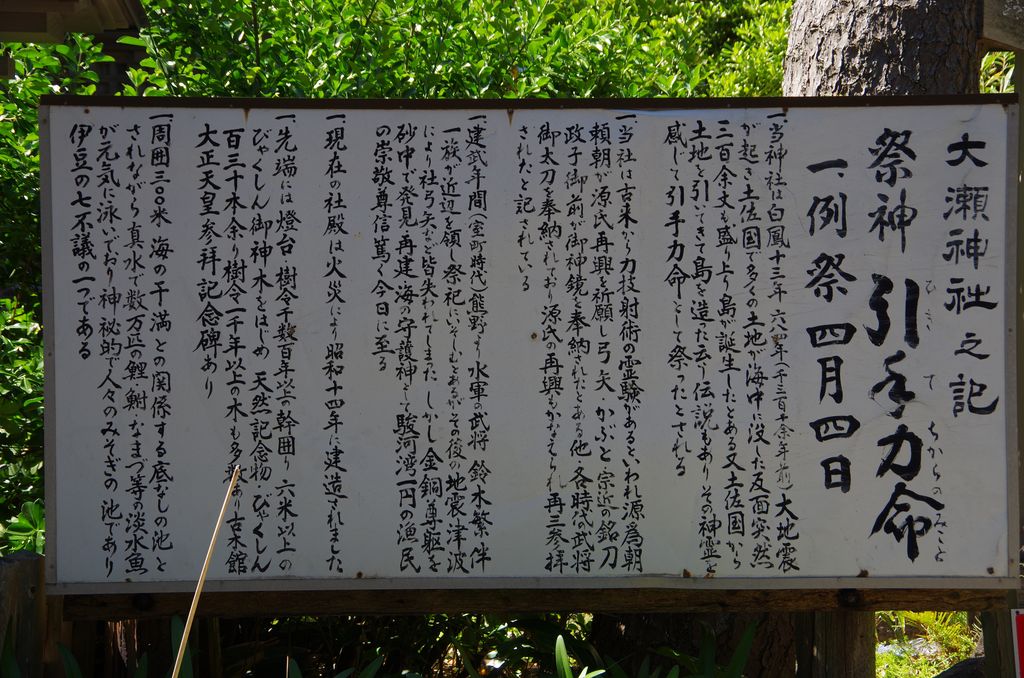 大瀬神社之記
祭神 引手力命
ひきてちからのみこと
一、例祭 四月四日
一、当神社は白鳳十三年 六八四年(千三百十余年前)大地震
が起き土佐国で多くの土地が海中に没した反面突然
三百余丈も盛り上り島が誕生したとある又土佐国から
土地を引いてきて島を造ったと云う伝説もあり その神霊を
感じて引手力命として祭ったとされる
一、当社は古来から力技射術の霊験があるといわれ源為朝
頼朝が源氏再興を祈願し弓 矢 かぶと 宗近の銘刀
政子御前が御神鏡を奉納されたとある他 各時代の武将
御太刀を奉納されており源氏の再興もかなえられ 再三参拝
されたと記されている
一、建武年間(室町時代)熊野より水軍の武将 鈴木繁伴
一族が近辺を領し祭祀にいそしむとあるがその後の地震津波
により社弓矢など皆失われてしまった しかし金銅の尊躯を
砂中で発見 再建 海の守護神として駿河湾一円の漁民
の崇敬尊信篤く今日に至る
一、現在の社殿は火災により昭和十四年に建造されました
一、先端には燈台 樹令千数百年以上 幹囲り 六米以上の
びゃくしん御神木をはじめ 天然記念物 びゃくしん
百三十本余り樹令一千年以上の木も多数あり古木館
大正天皇参拝記念碑あり
一、周囲三〇〇米 海の干満との関係する底なしの池と
されながら真水で数万匹の鯉 鮒 なまづ等の淡水魚
が元気に泳いでおり神秘的で人々のみそぎの池であり
伊豆の七不議の一つである